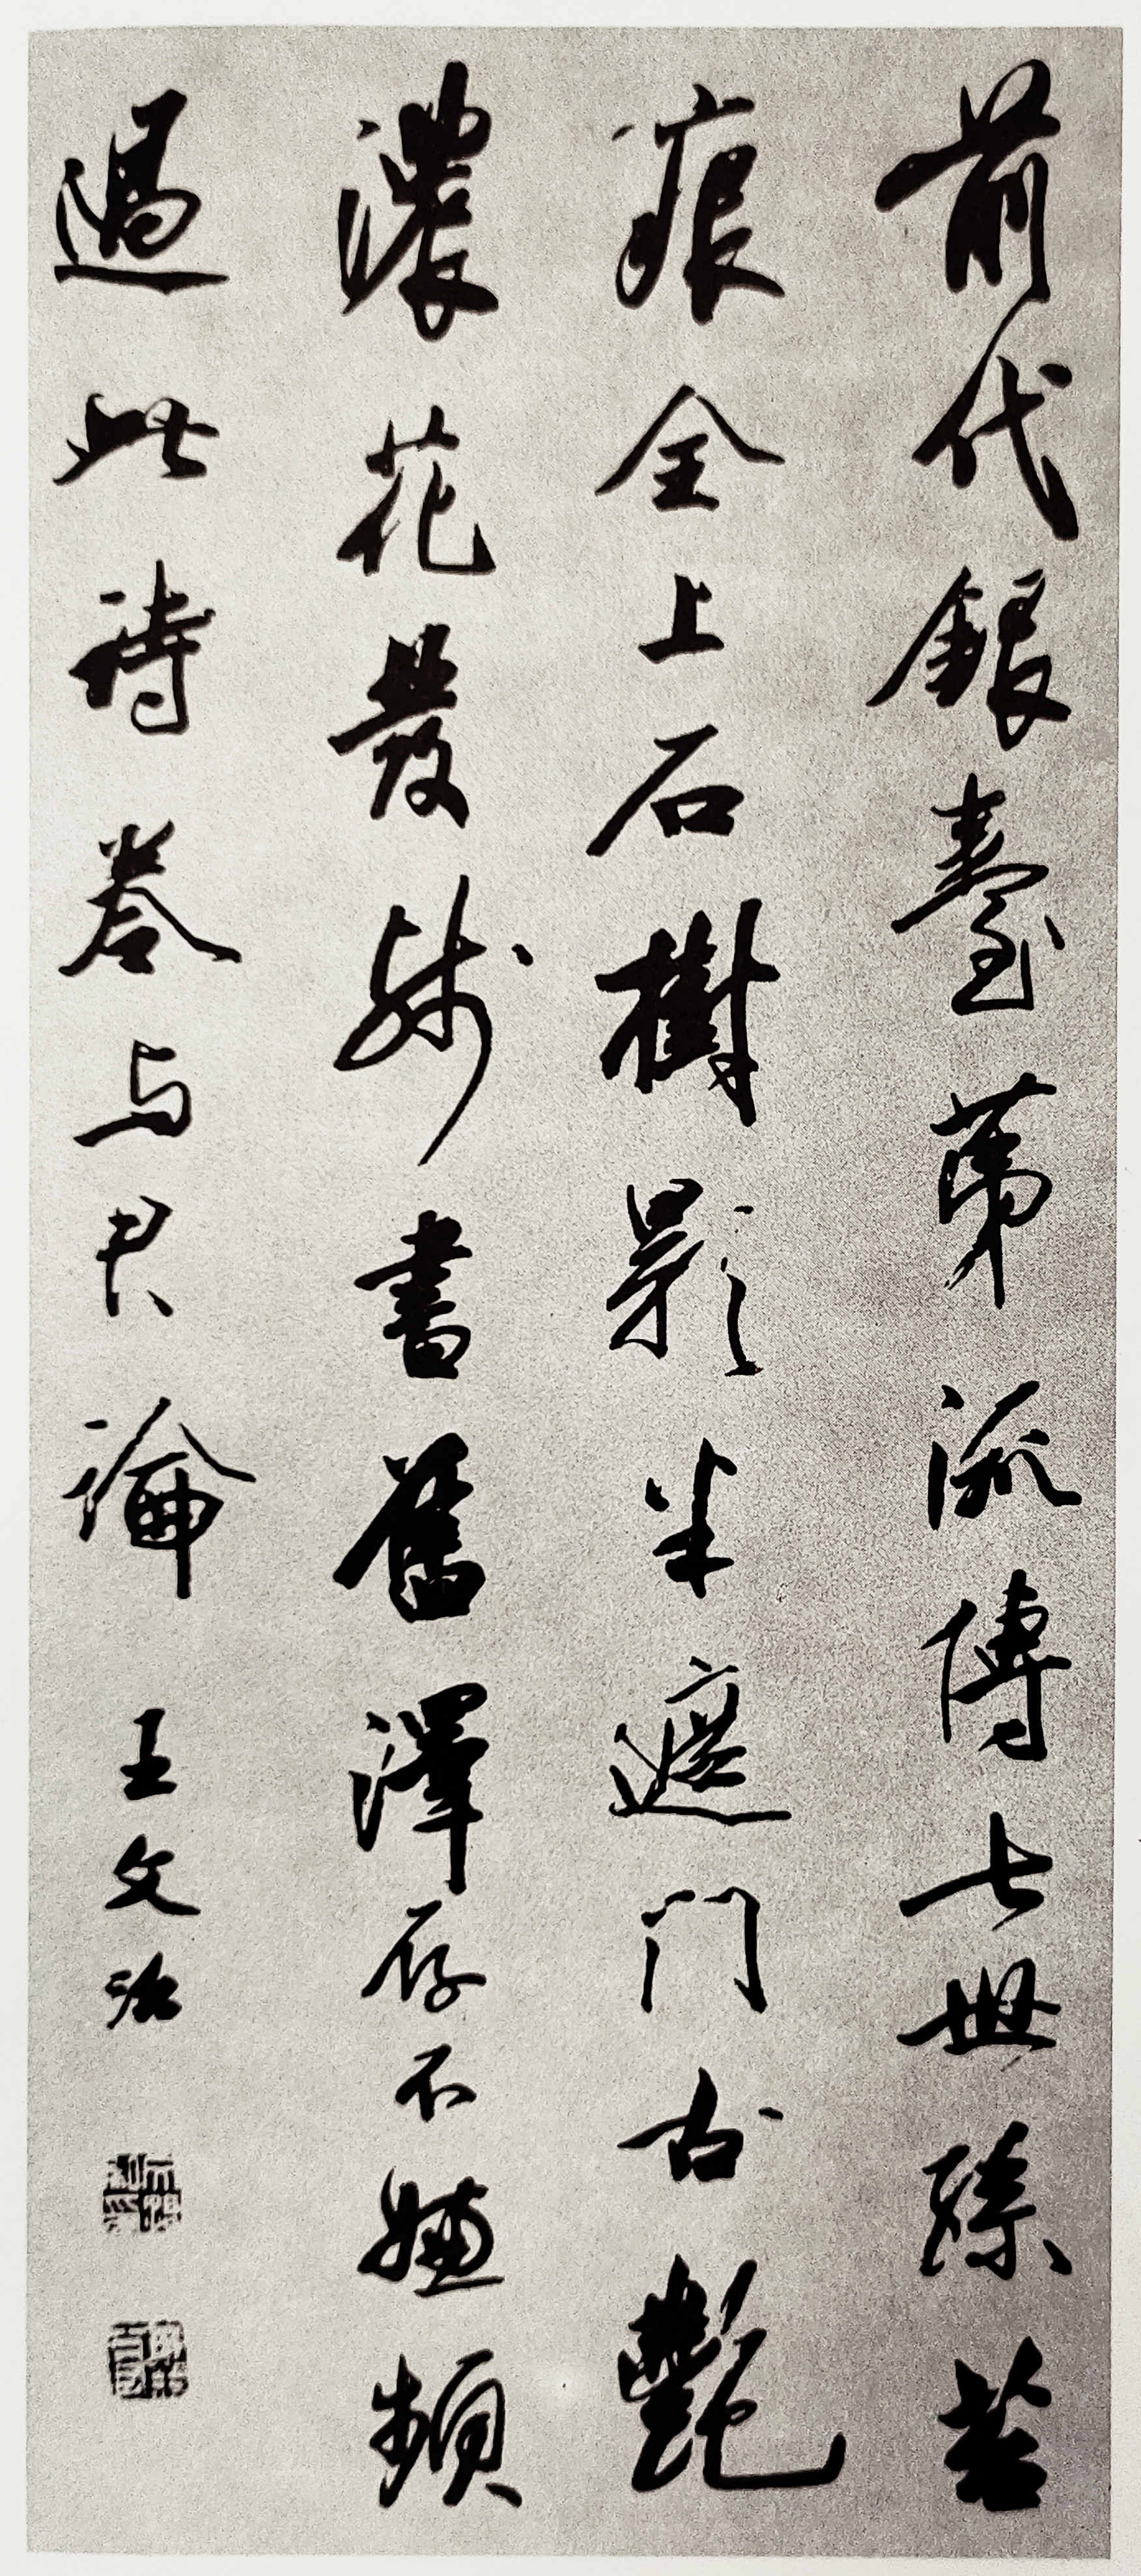 前代銀臺第流傳七世孫苔
痕全上石樹影半遮门古艷
濃花發殘書舊澤存不嫌頻
過此詩卷与君論
王文治